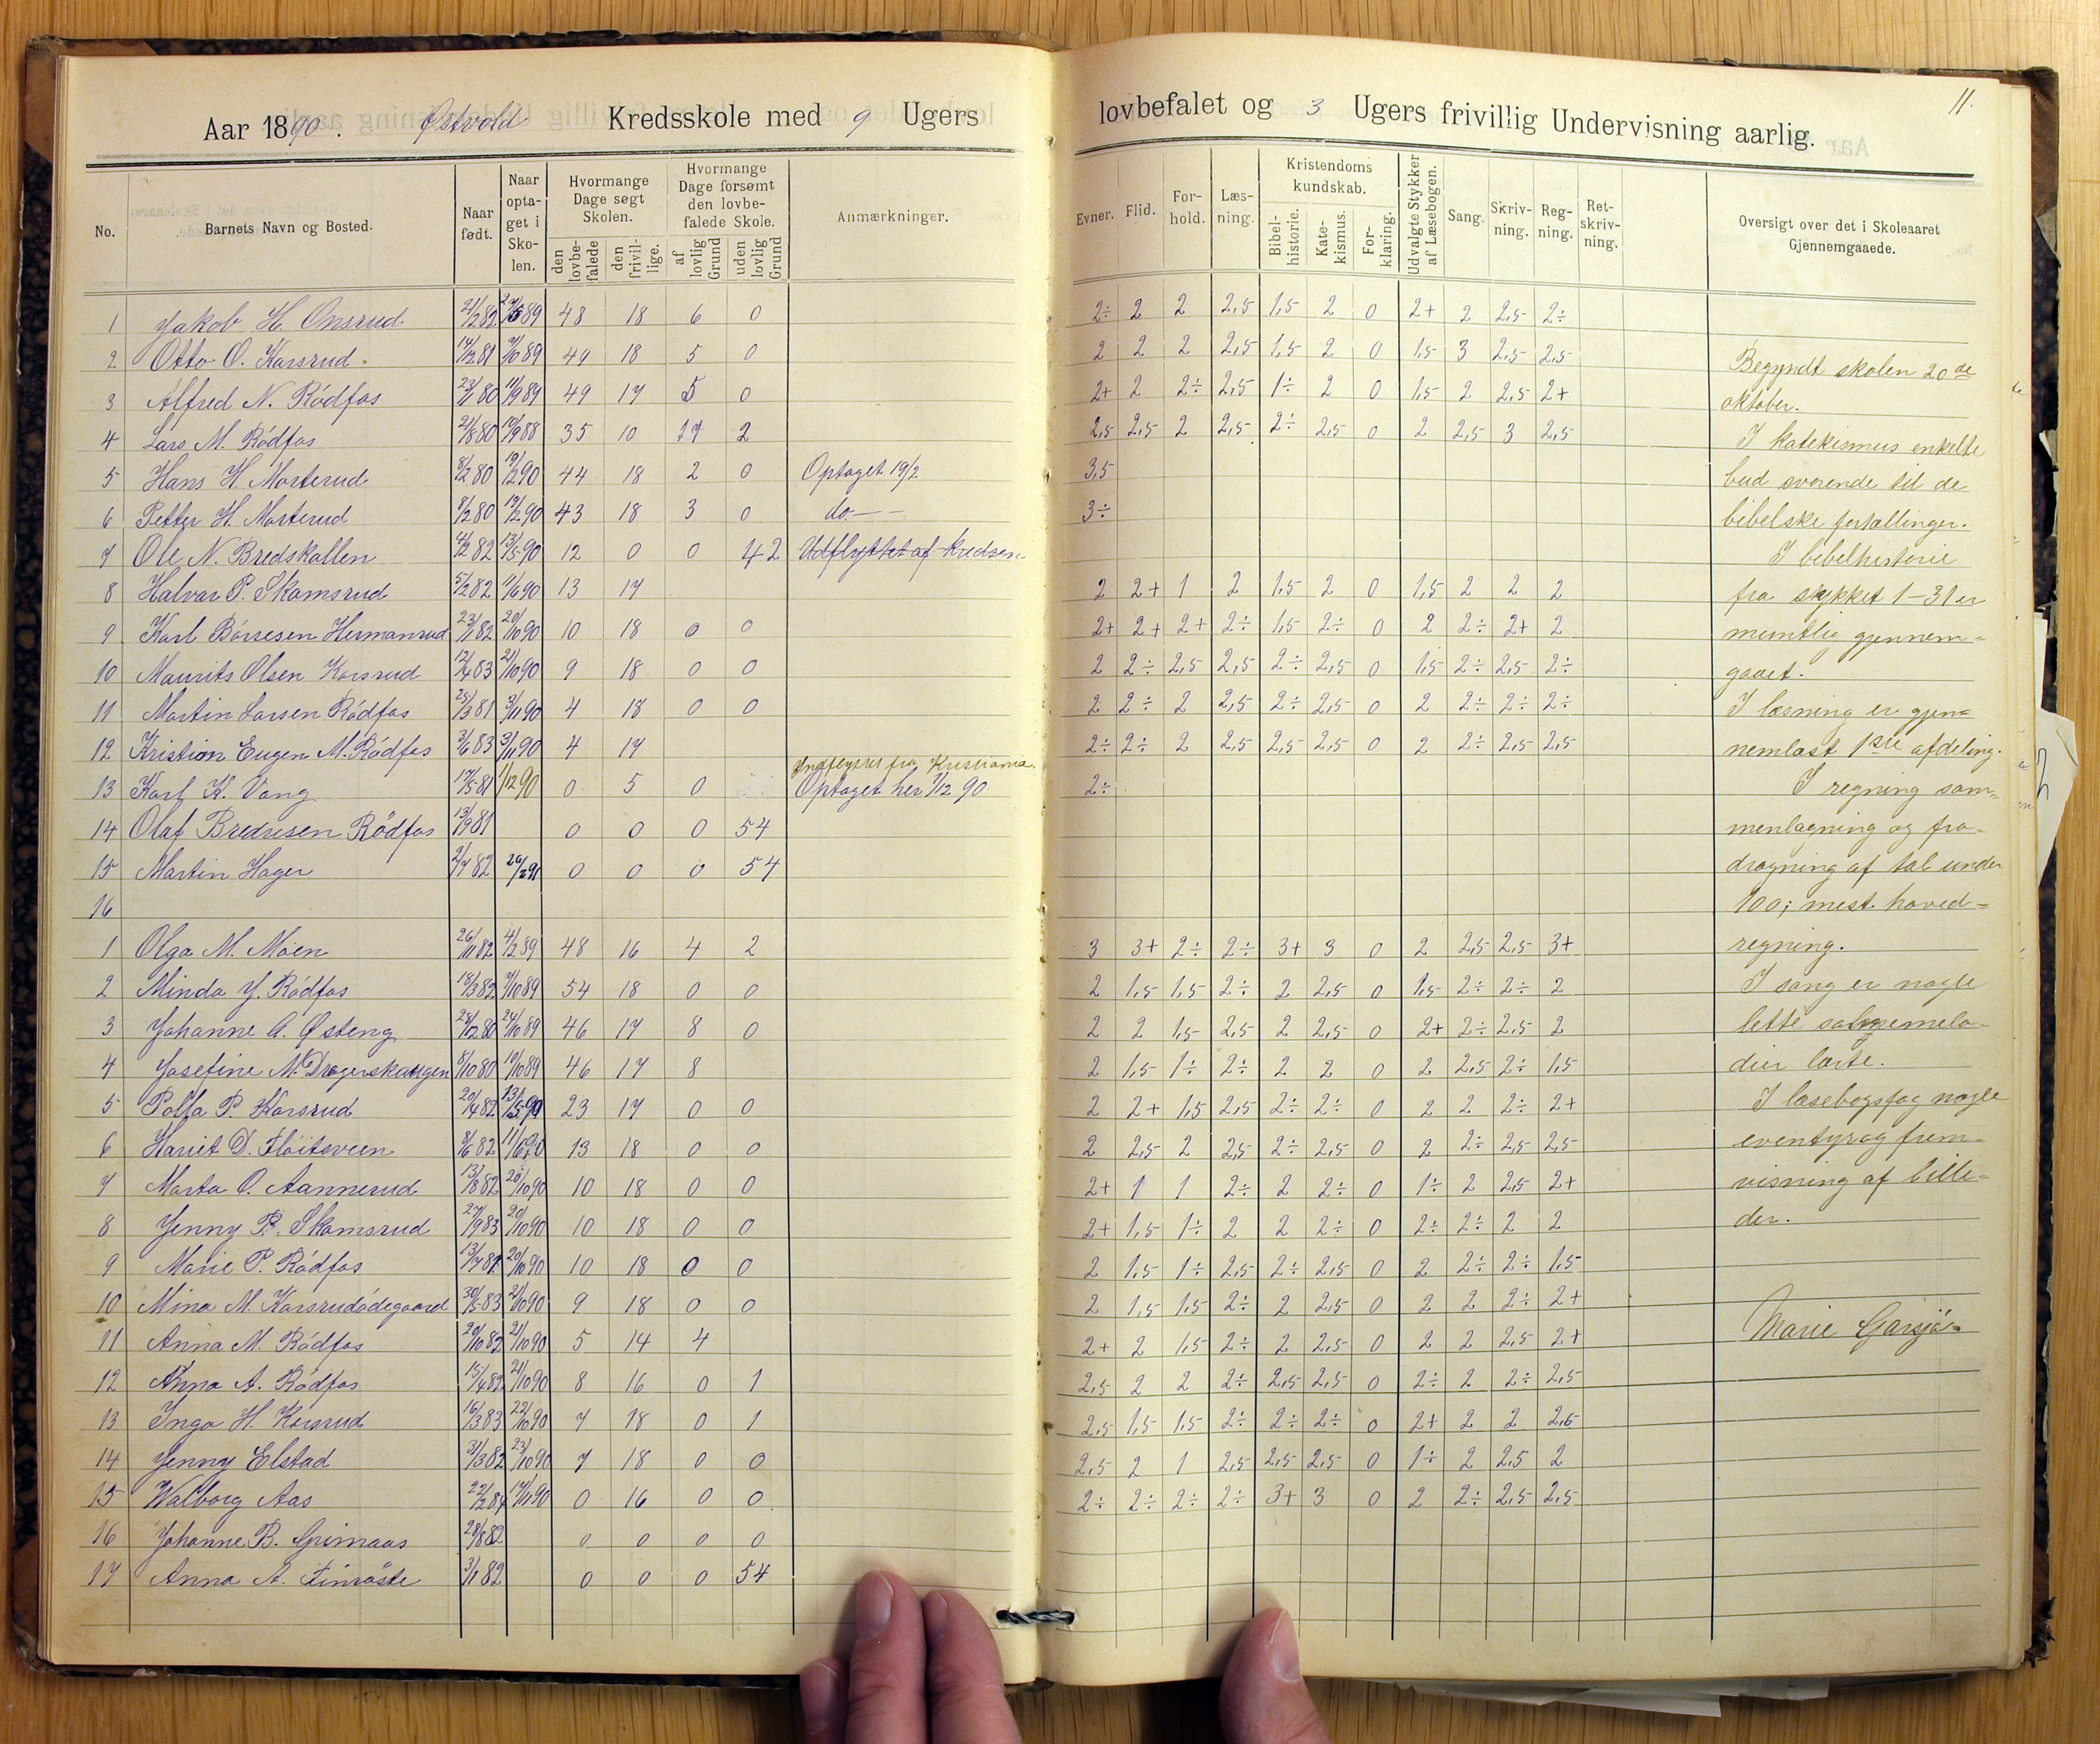 Aar 1890. Østvold Kredsskole med 9 Ugers
No.
Barnets Navn og Bosted.
Naar født.
Naar optaget i Skolen.
Hvormange Dage søgt Skolen.
den lovbefalede
den frivillige.
Hvormange Dage forsømt den lovbefalede Skole.
af lovlig Grund
uden lovlig Grund
Anmærkninger.
1 Jakob H. Onsrud 21/2 82 89 48 18 6 0
2 Otto O. Korsrud. 14/2 81 7/10 89 49 18 5 0
3 Alfred N. Rödfos 23/1 80 11/9 89 49 17 5 0
4 Lars M. Rödfos 21/8 80 19/9 88 35 10 17 2
5 Hans H. Morterud 8/2 80 19/2 90 44 18 2 0 Optaget 19/2
6 Petter H. Morterud 8/2 80 19/2 90 43 18 3 0 do. — -
7 Ole N. Bredskallen 4/2 82 13/5 90 12 0 0 42 Udflyttet af kredsen.
8 Halvar P. Skamsrud 5/2 82 11/6 90 13 17
9 Karl Börresen Hermanrud 23/1 82 20/10 90 10 18 0 0
10 Maurits Olsen Korsrud 12/4 83 21/10 90 9 18 0 0
11 Martin Larsen Rödfos 25/3 81 3/11 90 4 18 0 0
12 Kristian Eugen M. Rödfos 3/6 83 3/11 90 4 17
Indflyttet fra Kristiania.
13 Karl K. Vang 17/5 81 1/12 90 0 5 0 Optaget her 1/12 90
14 Olaf Bredesen Rödfos 13/9 81 0 0 0 54
15 Martin Hager 2/7 82 26/2 91 0 0 0 54
16
1 Olga M. Moen 26/11 82 4/2 89 48 16 4 2
2 Minda J. Rödfos 18/3 82 7/10 89 54 18 0 0
3 Johanne A. Østeng 28/12 80 24/10 89 46 17 8 0
4 Josefine N. Dragerskaugen 8/10 80 10/10 89 46 17 8
5 Polla P. Korsrud 20/4 82 13/5 90 23 17 0 0
6 Hariet D. Flöitsveen 8/6 82 11/6 90 13 18 0 0
7 Marta O. Aannerud 13/8 82 20/10 90 10 18 0 0
8 Jenny P. Skamsrud 27/9 83 20/10 90 10 18 0 0
9 Marie P. Rödfos 13/7 81 20/10 90 10 18 0 0
10 Mina M. Korsrudödegaard 30/5 83 21/10 90 9 18 0 0
11 Anna M. Rödfos 20/10 82 21/10 90 5 14 4
12 Anna A. Rödfos 15/4 82 21/10 90 8 16 0 1
13 Inga H. Korsrud 16/3 83 22/10 90 7 18 0 1
14 Jenny Elstad 31/3 82 23/10 90 7 18 0 0
15 Walborg Aas 22/2 84 17/11 90 0 16 0 0
16 Johanne B. Grimaas 28/8 82 0 0 0 0
17 Anna A. Finröste 3/1 82 0 0 0 54
11.
lovbefalet og 3 Ugers frivillig Undervisning aarlig.
Evner.
Flid.
Forhold.
Læsning.
Kristendomskundskab.
Bibelhistorie.
Katekismus.
Forklaring.
Udvalgte Stykker af Læsebogen.
Sang.
Skrivning.
Regning.
Retskrivning.
Oversigt over det i Skoleaaret Gjennemgaaede.
2÷ 2 2 2,5 1,5 2 0 2+ 2 2,5 2÷
2 2 2 2,5 1,5 2 0 1,5 3 2,5 2,5
2+ 2 2÷ 2,5 1÷ 2 0 1,5 2 2,5 2+
2,5 2,5 2 2,5 2÷ 2,5 0 2 2,5 3 2,5
3,5
3÷
2 2+ 1 2 1,5 2 0 1,5 2 2 2
2+ 2+ 2+ 2÷ 1,5 2÷ 0 2 2÷ 2+ 2
2 2÷ 2,5 2,5 2÷ 2,5 0 1,5 2÷ 2,5 2÷
2 2÷ 2 2,5 2÷ 2,5 0 2 2÷ 2÷ 2÷
2÷ 2÷ 2 2,5 2,5 2,5 0 2 2÷ 2,5 2,5
2÷
3 3+ 2÷ 2÷ 3+ 3 0 2 2,5 2,5 3+
2 1,5 1,5 2÷ 2 2,5 0 1,5 2÷ 2÷ 2
2 2 1,5 2,5 2 2,5 0 2+ 2÷ 2,5 2
2 1,5 1÷ 2÷ 2 2 0 2 2,5 2÷ 1,5
2 2+ 1,5 2,5 2÷ 2÷ 0 2 2 2÷ 2+
2 2,5 2 2,5 2÷ 2,5 0 2 2÷ 2,5 2,5
2+ 1 1 2÷ 2 2÷ 0 1÷ 2 2,5 2+
2+ 1,5 1÷ 2 2 2÷ 0 2÷ 2÷ 2 2
2 1,5 1÷ 2,5 2÷ 2,5 0 2 2÷ 2÷ 1,5
2 1,5 1,5 2÷ 2 2,5 0 2 2 2÷ 2+
2+ 2 1,5 2÷ 2 2,5 0 2 2 2,5 2+
2,5 2 2 2÷ 2,5 2,5 0 2÷ 2 2÷ 2,5
2,5 1,5 1,5 2÷ 2÷ 2÷ 0 2+ 2 2 2,5
2,5 2 1 2,5 2,5 2,5 0 1÷ 2 2,5 2
2÷ 2÷ 2÷ 2÷ 3+ 3 0 2 2÷ 2,5 2,5
Begyndt skolen 20de
oktober.
I katekismus enkelte
bud svarende til de
bibelske fortællinger.
I bibelhistorie
fra stykket 1–31 er
mundtlig gjennem=
gaaet.
I læsning er gjen=
nemlæst 1ste afdeling.
I regning sam=
menlægning og fra-
dragning af tal under
100; mest hoved=
regning.
I sang er nogle
lette salmemelo-
dier lærte.
I læsebogsfag nogle
eventyr og frem-
visning af bille-
der.
Marie Garsjö